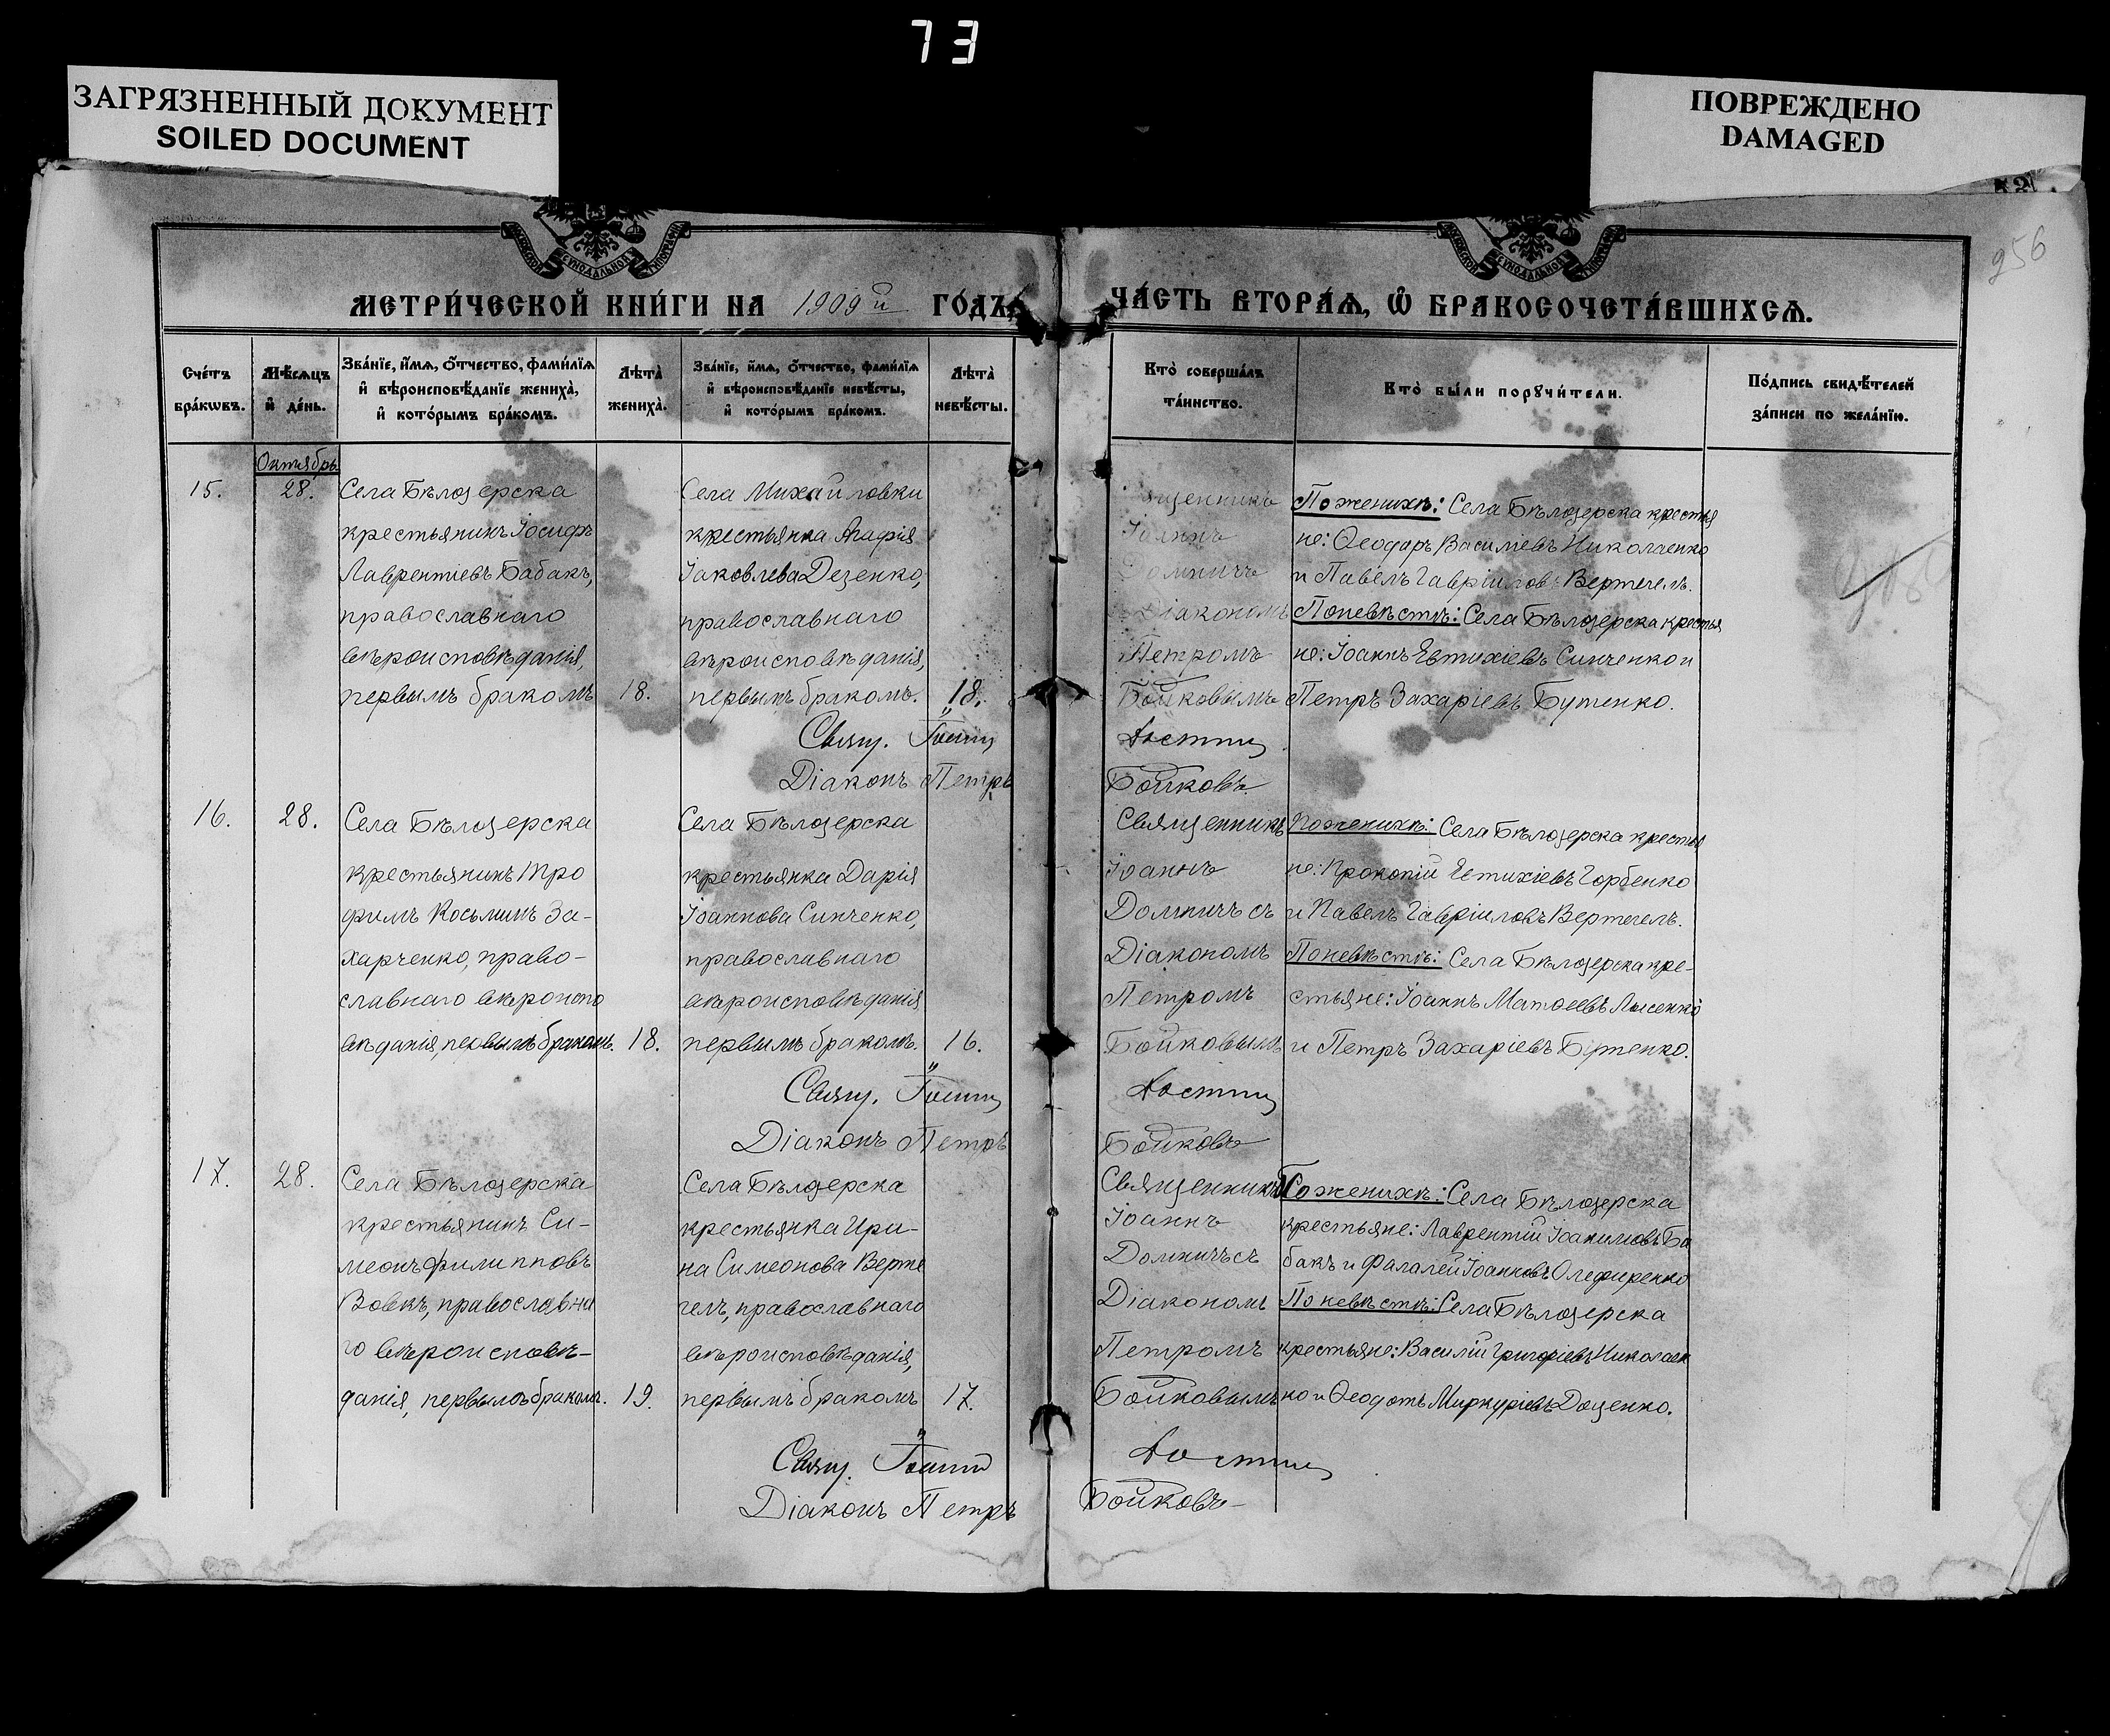 73
ЗАГРЯЗНЕННЫЙ ДОКУМЕНТ
SOILED DOCUMENT
ПОВРЕЖДЕНО
DAMAGED
256
МЕТРИ́ЧЕСКОЙ КНИ́ГИ НА 1909й ГО́ДЪ,
ЧА́СТЬ ВТОРА́Ѧ, Ѡ БРАКОСОЧЕТА́ВШИХСѦ.
Сче́тъ бра́кѡвъ.
Мѣ́сяцъ и́ де́нь.
Зва́нїе, и́мѧ, ѻ́тчество, фами́лїѧ и́ вѣроисповѣ́данїе жениха̀, и́ кото́рымъ бра́комъ.
Лѣта̀ жениха̀.
Зва́нїе, и́мѧ, ѻ́тчество, фами́лїѧ и́ вѣроисповѣ́данїе невѣ́сты, и́ кото́рымъ бра́комъ.
Лѣта̀ невѣ́сты.
Кто̀ соверша́лъ та́инство.
Кто̀ бы́ли порꙋчи́тели.
По́дпись свидѣ́телей за́писи по жела́нїю.
Октябрь
15.
28.
Села Бѣлозерска
крестьянинъ Іосифъ
Лаврентіевъ Бабакъ,
православнаго
вѣроисповѣданія,
первымъ бракомъ
18.
Села Михайловки
крестьянка Агафія
Іаковлева Дезенко,
православнаго
вѣроисповѣданія,
первымъ бракомъ.
18.
Іоаннъ
Домничъ
Діакономъ
Петромъ
Бойковымъ
По женихѣ: Села Бѣлозерска крестья
не: Ѳеодоръ Василіевъ Николаенко
и Павелъ Гавріиловъ Вертегелъ.
По невѣстѣ: Села Бѣлозерска крестья
не: Іоаннъ Евтихіевъ Синченко и
Петръ Захаріевъ Бутенко.
Свящ.
Діаконъ Петръ Бойковъ.
16.
28.
Села Бѣлозерска
крестьянинъ Тро
фимъ Косьминъ За-
харченко, право-
славнаго вѣроиспо
вѣданія, первымъ бракомъ.
18.
Села Бѣлозерска
крестьянка Дарія
Іоаннова Синченко,
православнаго
вѣроисповѣданія
первымъ бракомъ.
16.
Священникъ
Іоаннъ
Домничъ съ
Діакономъ
Петромъ
Бойковымъ
По женихѣ: Села Бѣлозерска крестья
не: Прокопій Евтихіевъ Горбенко
и Павелъ Гавріиловъ Вертегелъ.
По невѣстѣ: Села Бѣлозерска кре-
стьяне: Іоаннъ Матѳеевъ Лысенко
и Петръ Захаріевъ Бутенко.
Свящ.
Діаконъ Петръ Бойковъ
17.
28.
Села Бѣлозерска
крестьянинъ Си-
меонъ Филипповъ
Вовкъ, православна
го вѣроисповѣ-
данія, первымъ бракомъ.
19.
Села Бѣлозерска
крестьянка Ири-
на Симеонова Верте
гелъ, православнаго
вѣроисповѣданія,
первымъ бракомъ
17.
Священникъ
Іоаннъ
Домничъ съ
Діакономъ
Петромъ
Бойковымъ
По женихѣ: Села Бѣлозерска
крестьяне: Лаврентій Іоакимовъ Ба
бакъ и Фалалей Іоанновъ Олефиренко
По невѣстѣ: Села Бѣлозерска
крестьяне: Василій Григоріевъ Николаен
ко и Ѳеодотъ Миркуріевъ Доценко.
Свящ.
Діаконъ Петръ Бойковъ